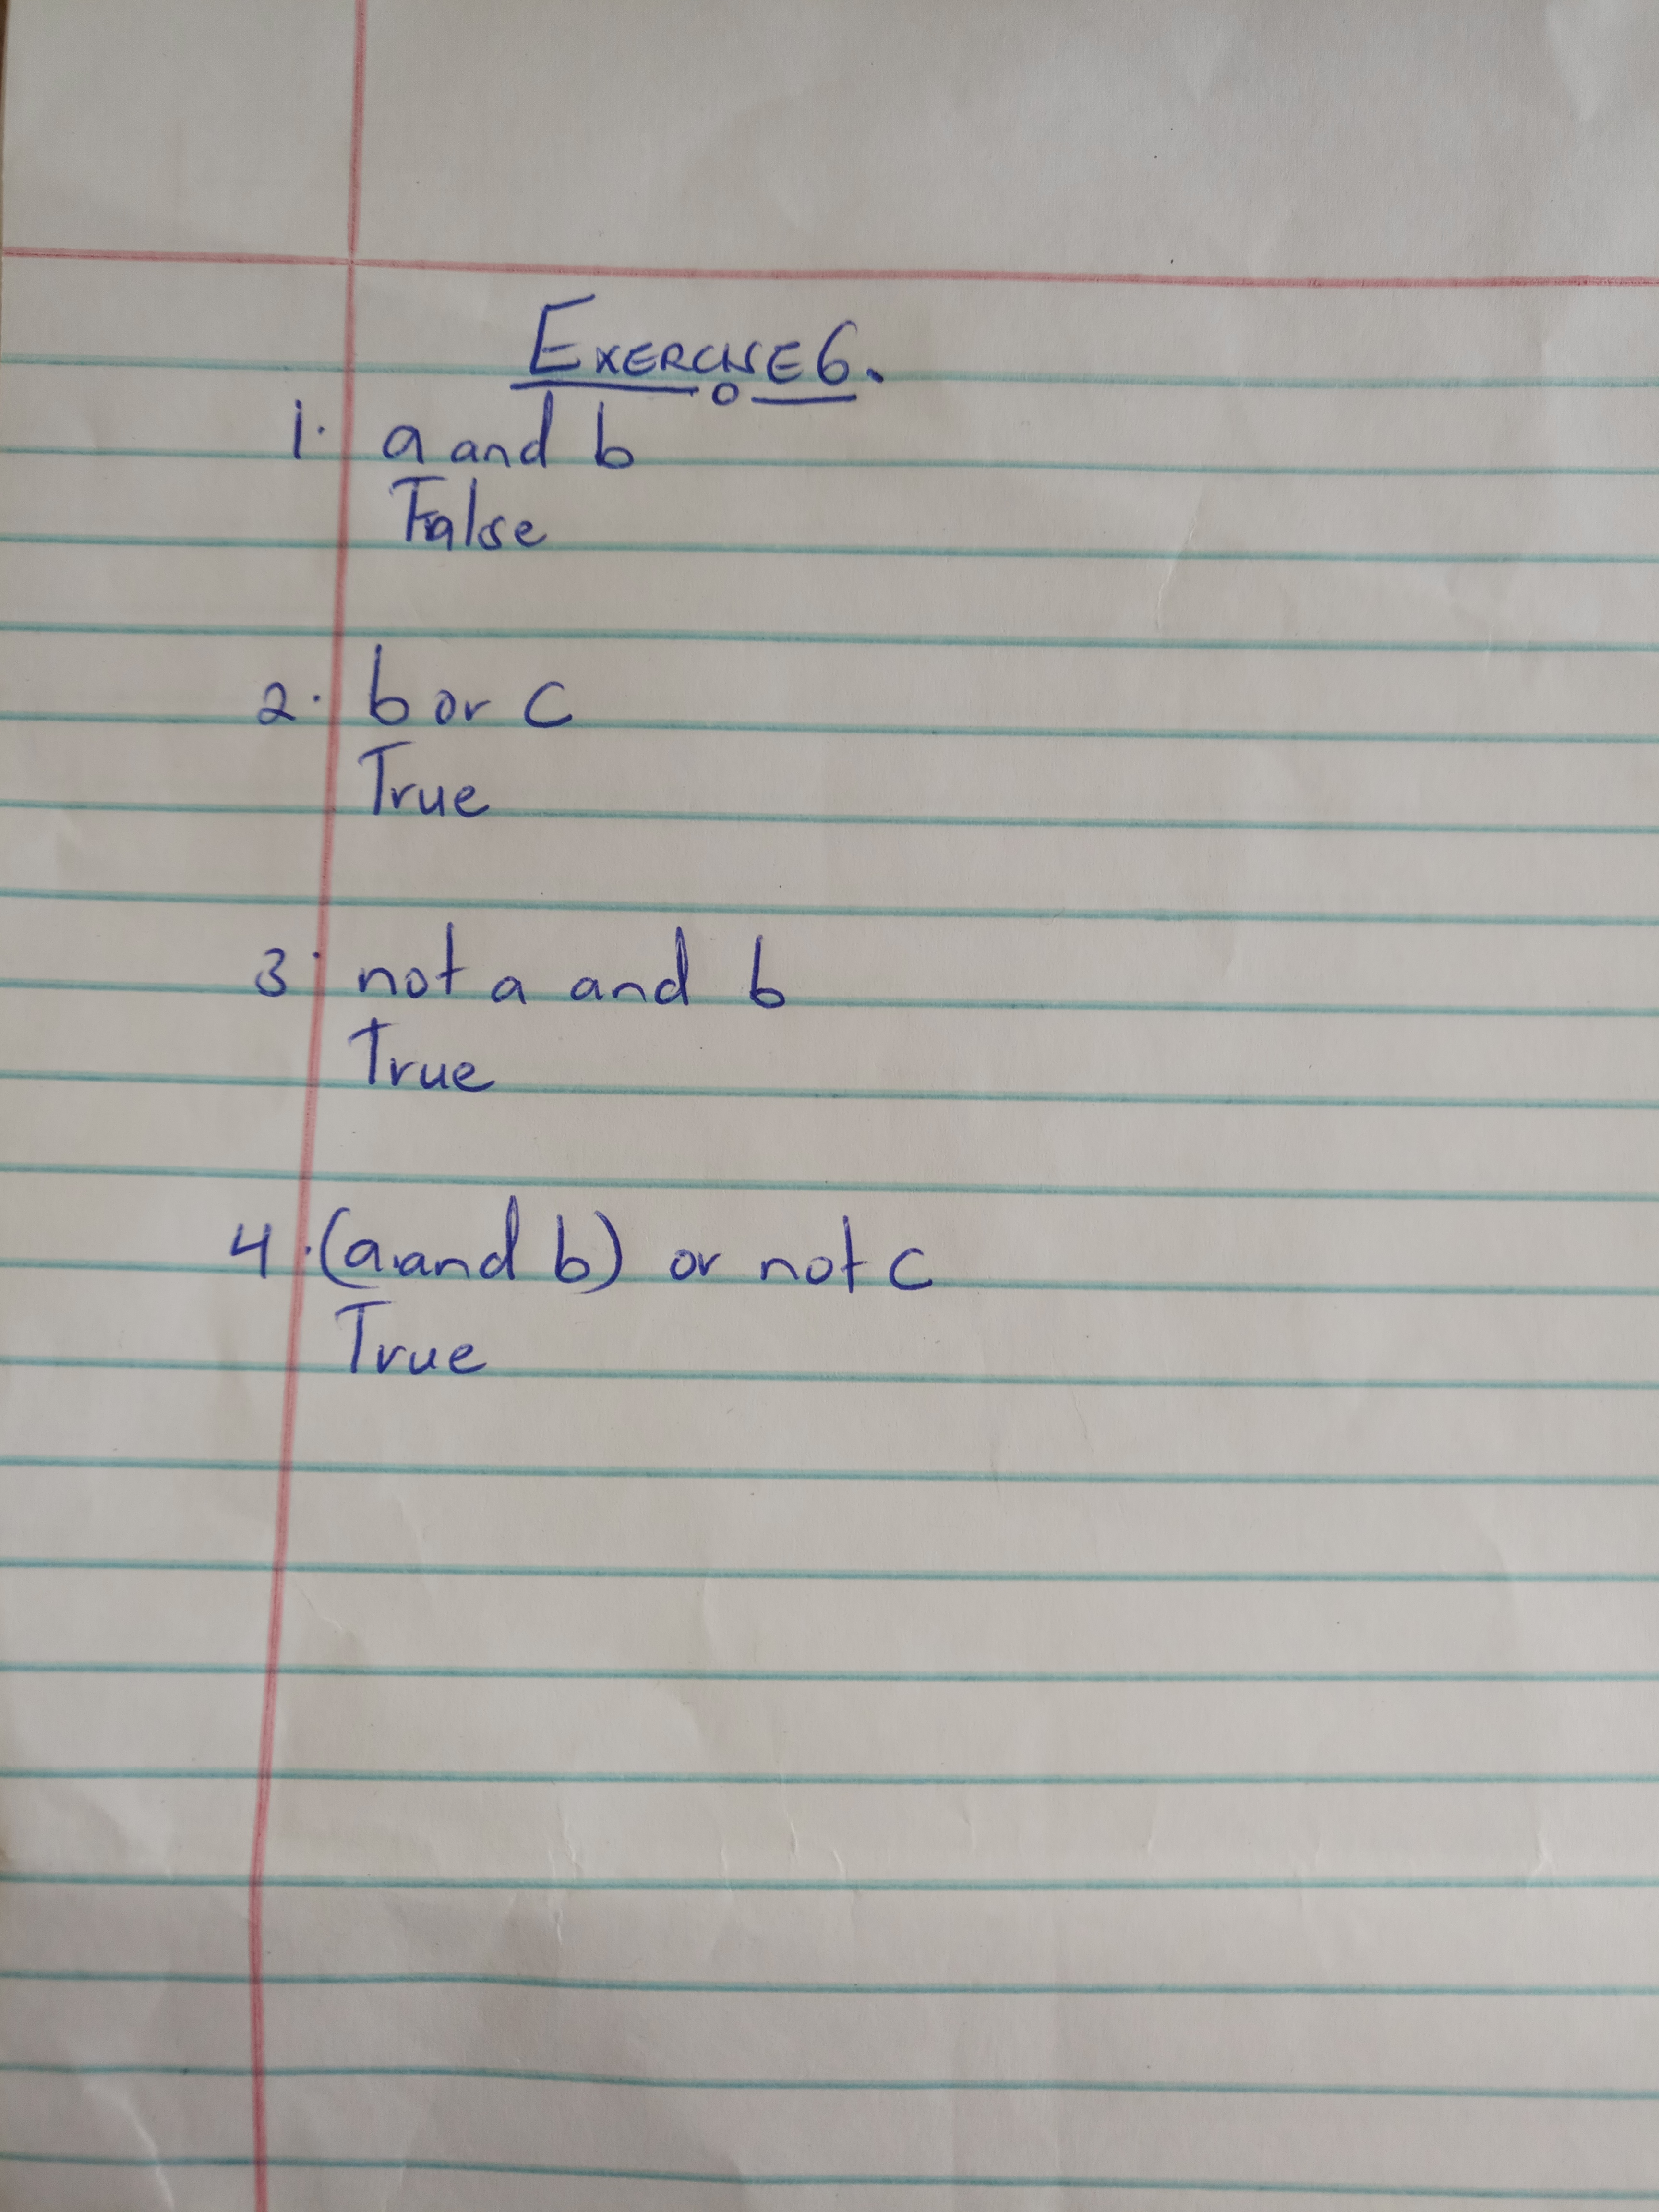 EXERCISE 6.
1. a and b
False
2. b or c
True
3. not a and b
True
4. (a and b) or not c
True